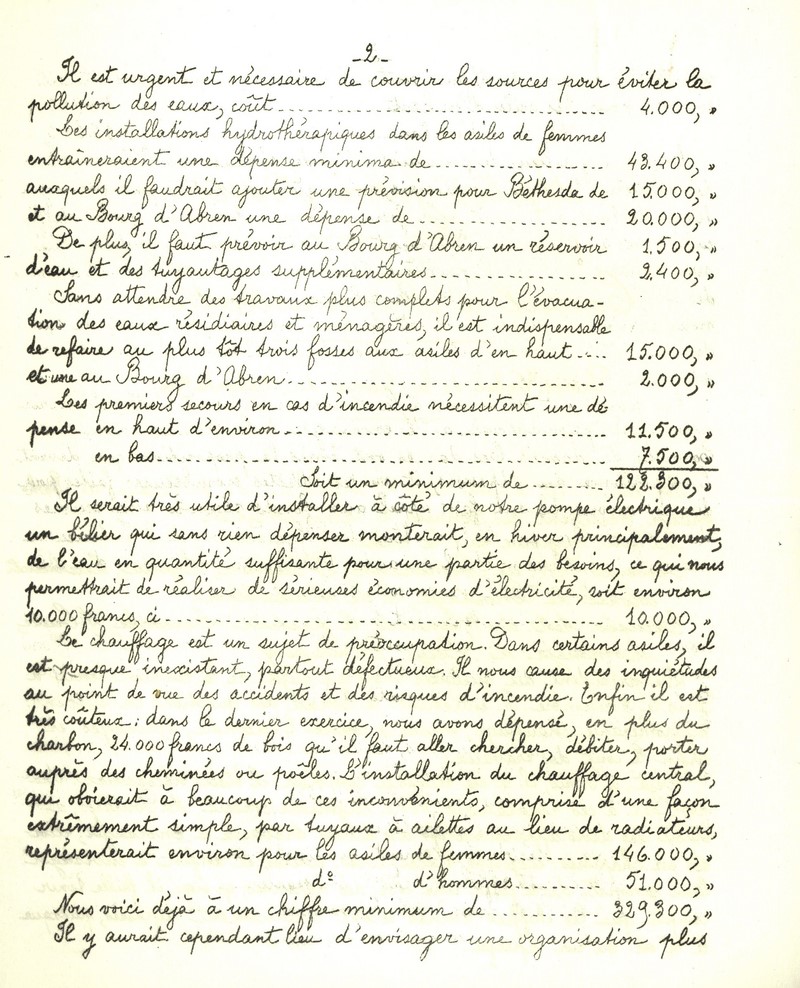 -2-
Il est urgent et nécessaire de couvrir les sources pour éviter la
pollution des eaux, coût.......... 4.000, "
Les installations hydrothérapiques dans les asiles de femmes
entraîneraient une dépense minima de.......... 43.400, "
auxquels il faudrait ajouter une prévision pour Béthesda de 15.000, "
et au Bourg d'Abren une dépense de.......... 20.000, "
De plus, il faut prévoir au Bourg d'Abren un réservoir 1.500, "
d'eau et des tuyautages supplémentaires.......... 2.400, "
Sans attendre des travaux plus complets pour l'évacua-
tion des eaux résidiaires et ménagères, il est indispensable
de refaire au plus tôt trois fosses aux asiles d'en haut.... 15.000, "
et une au Bourg d'Abren.......... 2.000, "
Les premiers secours en cas d'incendie nécessitent une dé
pense en haut d'environ.......... 11.500, "
en bas.......... 7.500, "
Soit un minimum de.......... 122.300, "
Il serait très utile d'installer à côté de notre pompe électrique
un bélier qui sans rien dépenser monterait, en hiver principalement,
de l'eau en quantité suffisante pour une partie des besoins, ce qui nous
permettrait de réaliser de sérieuses économies d'électricité, soit environ
10.000 francs, ci.......... 10.000, "
Le chauffage est un sujet de préoccupation. Dans certains asiles, il
est presque inexistant, partout défectueux. Il nous cause des inquiétudes
au point de vue des accidents et des risques d'incendie. Enfin il est
très coûteux: dans le dernier exercice, nous avons dépensé, en plus du
charbon, 24.000 francs de bois qu'il faut aller chercher, débiter, porter
auprès des cheminées ou poêles. L'installation du chauffage central,
qui obvierait à beaucoup de ces inconvénients, comprise d'une façon
extrêmement simple, par tuyaux à ailettes au lieu de radiateurs,
représenterait environ pour les asiles de femmes.......... 146.000, "
d° d'hommes.......... 51.000, "
Nous voici déjà à un chiffre minimum de.......... 329.300, "
Il y aurait cependant lieu d'envisager une organisation plus